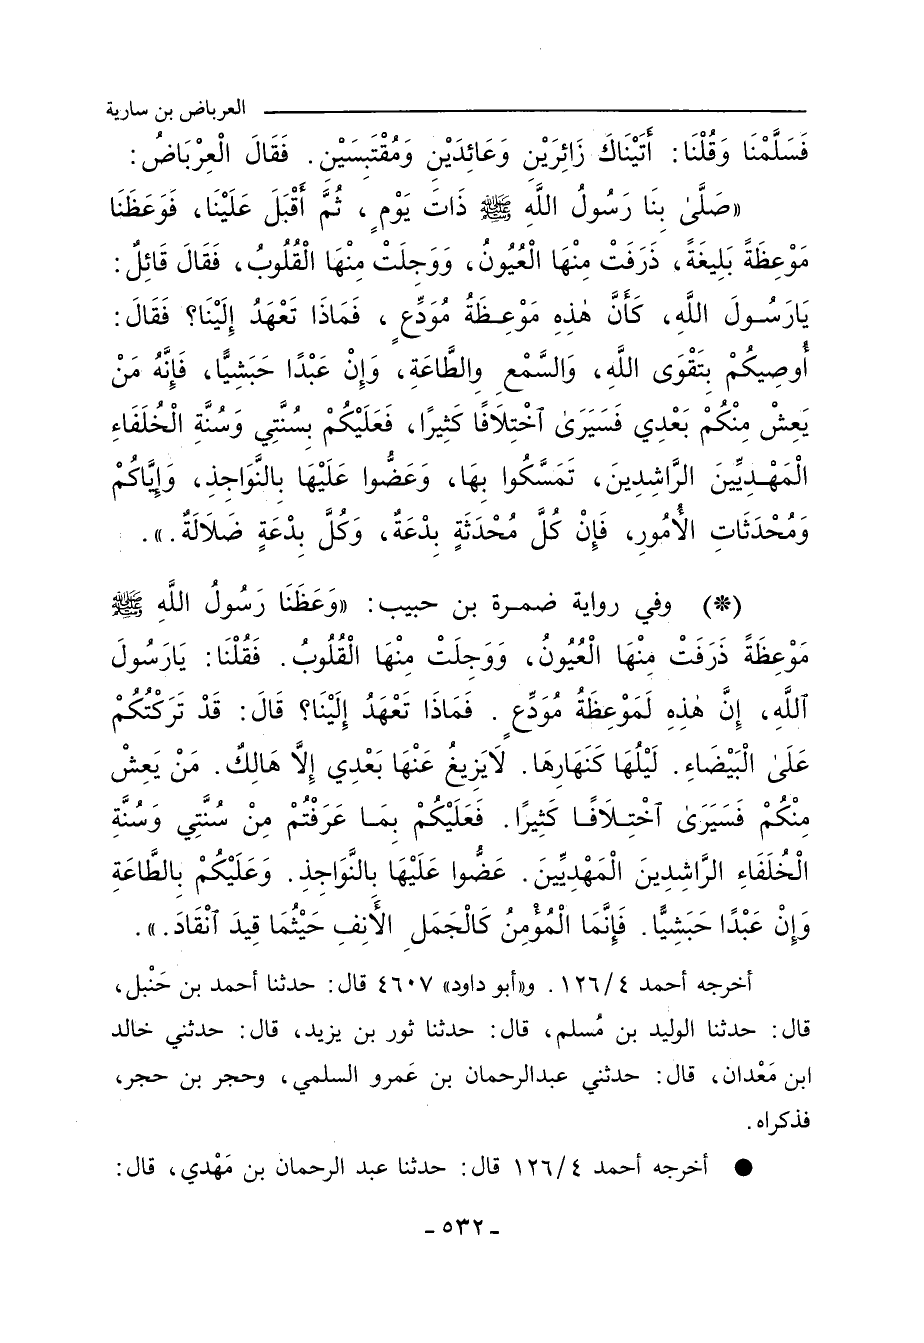 العرباض بن سارية
فَسَلَّمْنَا وَقُلْنَا: أَتَيْنَاكَ زَائِرَيْنِ وَعَائِدَيْنِ وَمُقْتَبِسَيْنِ. فَقَالَ الْعِرْبَاضُ:
«صَلَّىٰ بِنَا رَسُولُ اللَّهِ ﷺ ذَاتَ يَوْمٍ، ثُمَّ أَقْبَلَ عَلَيْنَا، فَوَعَظَنَا
مَوْعِظَةً بَلِيغَةً، ذَرَفَتْ مِنْهَا الْعُيُونُ، وَوَجِلَتْ مِنْهَا الْقُلُوبُ، فَقَالَ قَائِلٌ:
يَارَسُولَ اللَّهِ، كَأَنَّ هٰذِهِ مَوْعِظَةُ مُوَدِّعٍ، فَمَاذَا تَعْهَدُ إِلَيْنَا؟ فَقَالَ:
أُوصِيكُمْ بِتَقْوَى اللَّهِ، وَالسَّمْعِ وِالطَّاعَةِ، وَإِنْ عَبْدًا حَبَشِيًّا، فَإِنَّهُ مَنْ
يَعِشْ مِنْكُمْ بَعْدِي فَسَيَرَىٰ ٱخْتِلَافًا كَثِيرًا، فَعَلَيْكُمْ بِسُنَّتِي وَسُنَّةِ الْخُلَفَاءِ
الْمَهْدِيِّينَ الرَّاشِدِينَ، تَمَسَّكُوا بِهَا، وَعَضُّوا عَلَيْهَا بِالنَّوَاجِذِ، وَإِيَّاكُمْ
وَمُحْدَثَاتِ الْأُمُورِ، فَإِنْ كُلَّ مُحْدَثَةٍ بِدْعَةٌ، وَكُلَّ بِدْعَةٍ ضَلَالَةٌ.».
(*) وفي رواية ضمرة بن حبيب: «وَعَظَنَا رَسُولُ اللَّهِ ﷺ
مَوْعِظَةً ذَرَفَتْ مِنْهَا الْعُيُونُ، وَوَجِلَتْ مِنْهَا الْقُلُوبُ. فَقُلْنَا: يَارَسُولَ
ٱللَّهِ، إِنَّ هٰذِهِ لَمَوْعِظَةُ مُوَدِّعٍ. فَمَاذَا تَعْهَدُ إِلَيْنَا؟ قَالَ: قَدْ تَرَكْتُكُمْ
عَلَىٰ الْبَيْضَاءِ. لَيْلُهَا كَنَهَارِهَا. لَايَزِيغُ عَنْهَا بَعْدِي إِلَّا هَالِكٌ. مَنْ يَعِشْ
مِنْكُمْ فَسَيَرَىٰ ٱخْتِلَافًا كَثِيرًا. فَعَلَيْكُمْ بِمَا عَرَفْتُمْ مِنْ سُنَّتِي وَسُنَّةِ
الْخُلَفَاءِ الرَّاشِدِينَ الْمَهْدِيِّينَ. عَضُّوا عَلَيْهَا بِالنَّوَاجِذِ. وَعَلَيْكُمْ بِالطَّاعَةِ
وَإِنْ عَبْدًا حَبَشِيًّا. فَإِنَّمَا الْمُؤْمِنُ كَالْجَمَلِ الأَنِفِ حَيْثُمَا قِيدَ ٱنْقَادَ.».
أخرجه أحمد ٤/١٢٦. و«أبو داود» ٤٦٠٧ قال: حدثنا أحمد بن حَنْبل،
قال: حدثنا الوليد بن مُسلم، قال: حدثنا ثور بن يزيد، قال: حدثني خالد
ابن مَعْدان، قال: حدثني عبدالرحمان بن عَمرو السلمي، وحجر بن حجر،
فذكراه.
● أخرجه أحمد ٤/١٢٦ قال: حدثنا عبد الرحمان بن مَهْدي، قال:
- ٥٣٢ -